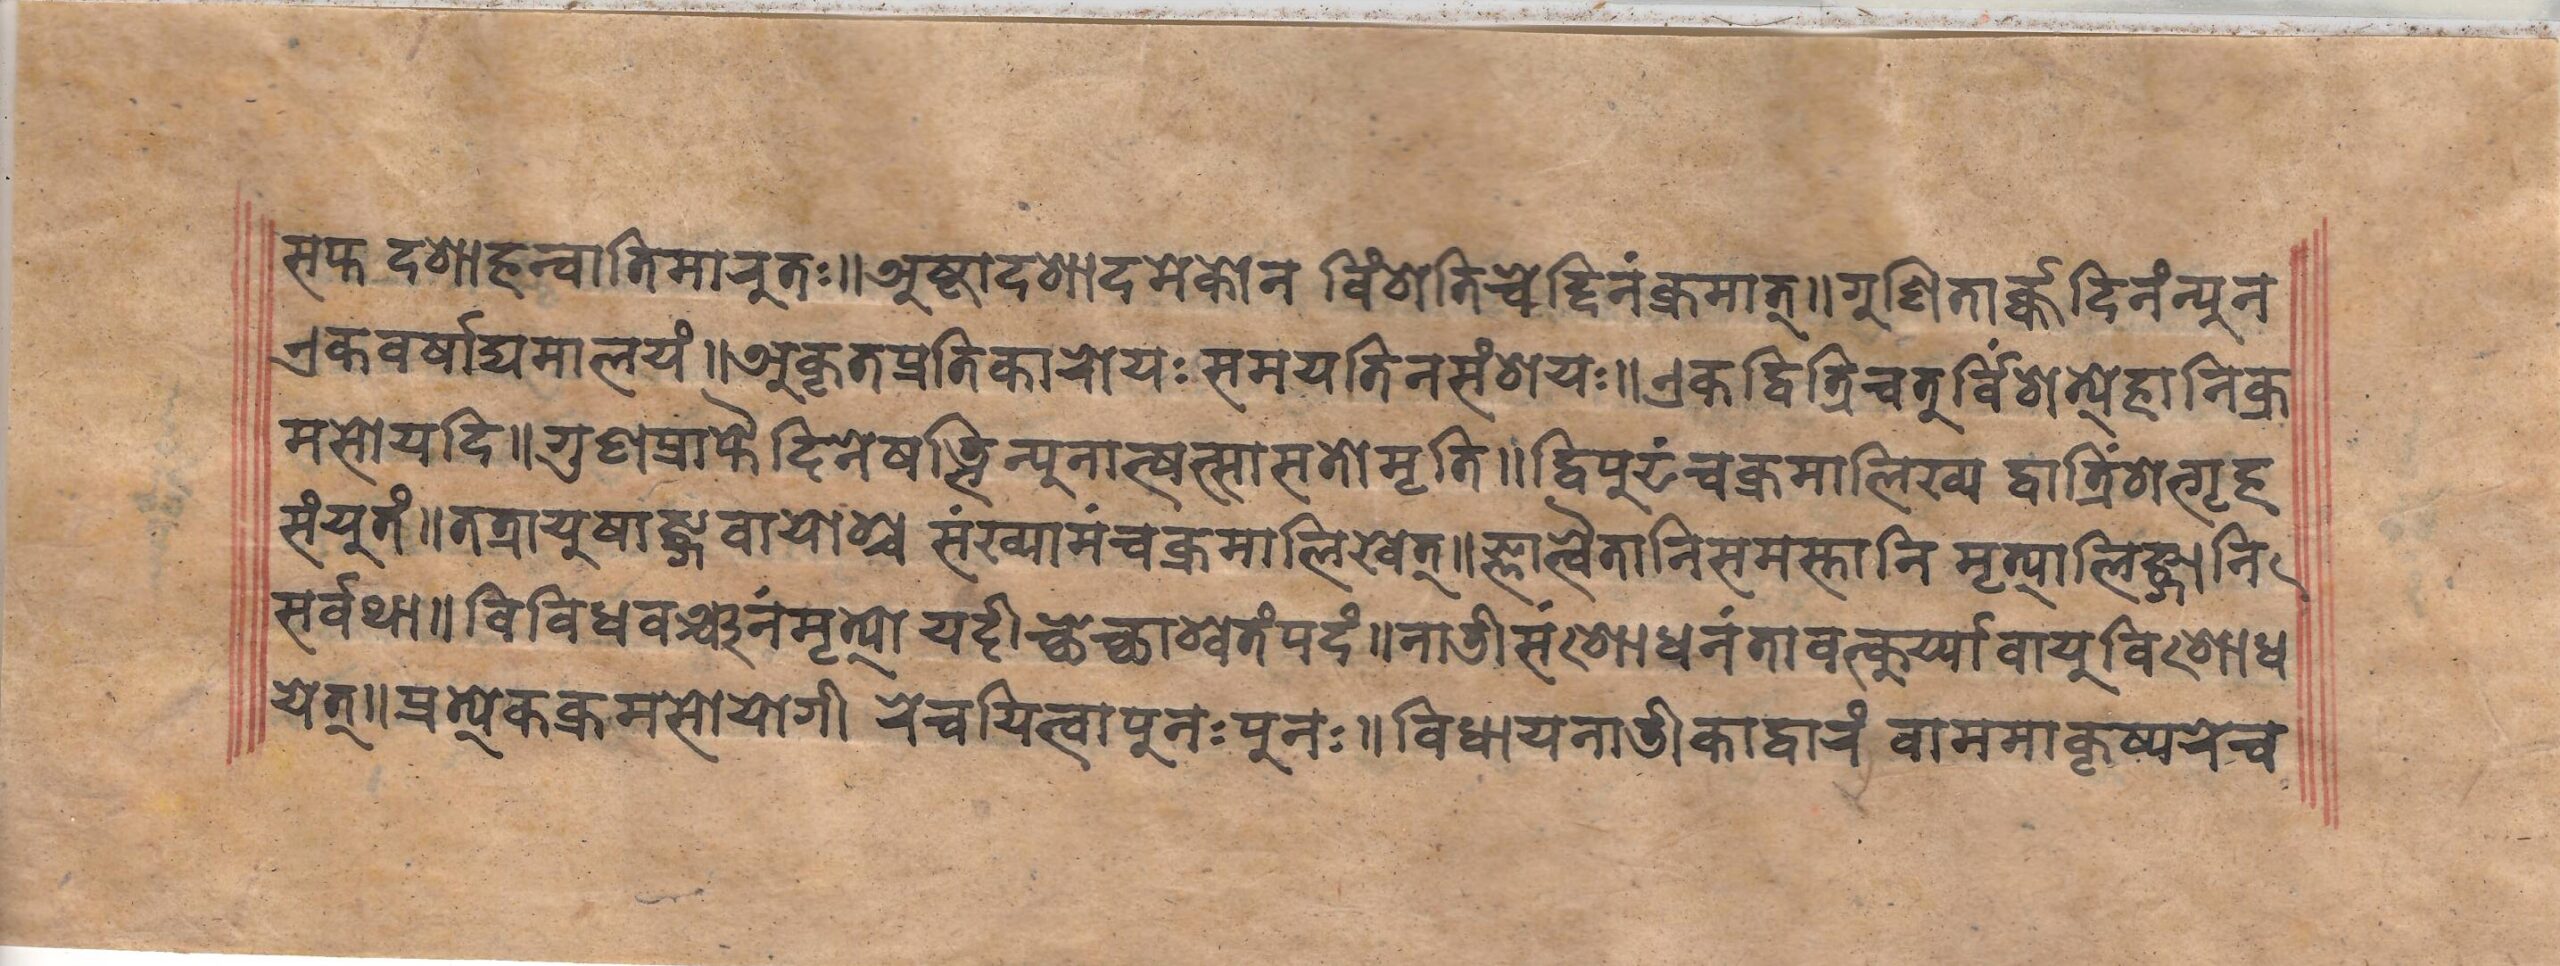 सप्त दशाहन्वातिमारुतः॥अष्टादशादमेकोन विंशतिश्चेद्दिनंक्रमात्॥गुणितार्क्कदिनंन्युन
एकवर्षाद्यमालयं॥अकृतप्रतिकारोयः समयतिनसंशयः॥एकद्वित्रिचतुर्विंशत्येहानिक्र
मसोयदि॥गुणप्राप्तैदिनेषत्रिन्युनात्षत्मासतोमृति॥द्विपुटंचक्रमालिख्य द्वात्रिंशत्गृह
संयुतं॥तत्रायुषाङ्गवायोश्च संख्यामंचक्रमालिखेत्॥ज्ञात्वैतानिसमस्तानि मृत्यालिङ्गानि
सर्वथा॥विविधवञ्चनंमृत्यो यदीच्छेच्छाश्वतंपदं॥नाडीसंशोधनंतावत्कुर्य्यावायुविशोध
येत्॥प्रत्येकक्रमसोयोगी रेचयित्वापुनःपुनः॥विधायनाडीकाद्वारं वाममाकृष्यरेच